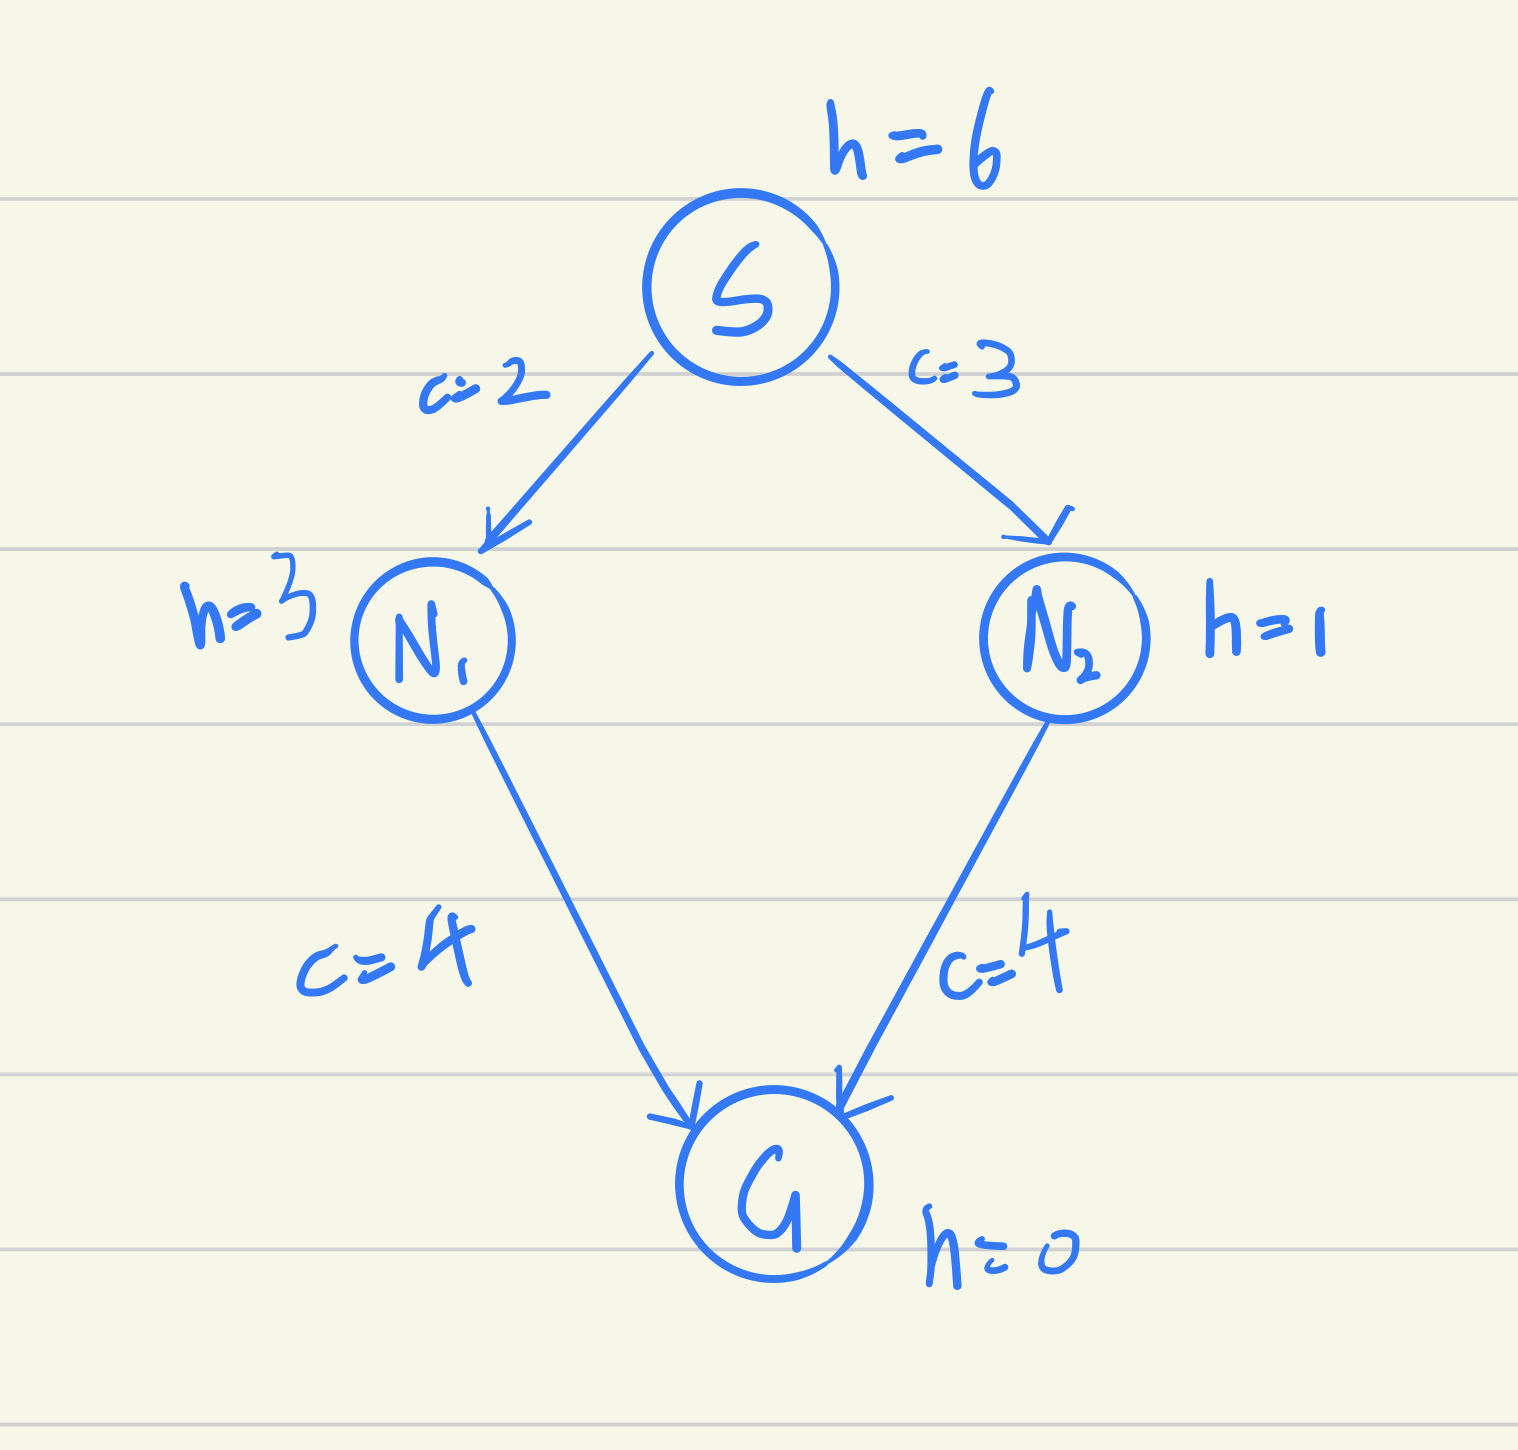 h=6
S
c=2
c=3
h=3
N₁
N₂
h=1
c=4
c=4
G
h=0